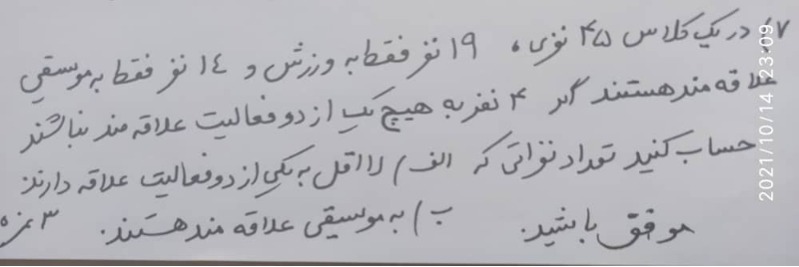 ۷) در یک کلاس ۴۵ نفری، ۱۹ نفر فقط به ورزش و ۱٤ نفر فقط به موسیقی
علاقه مند هستند اگر ۴ نفر به هیچ یک از دو فعالیت علاقه مند نباشند
حساب کنید تعداد نفراتی که الف) لااقل به یکی از دو فعالیت علاقه دارند
ب) به موسیقی علاقه مند هستند. ۳ نمره
موفق باشید.
2021/10/14 23:09